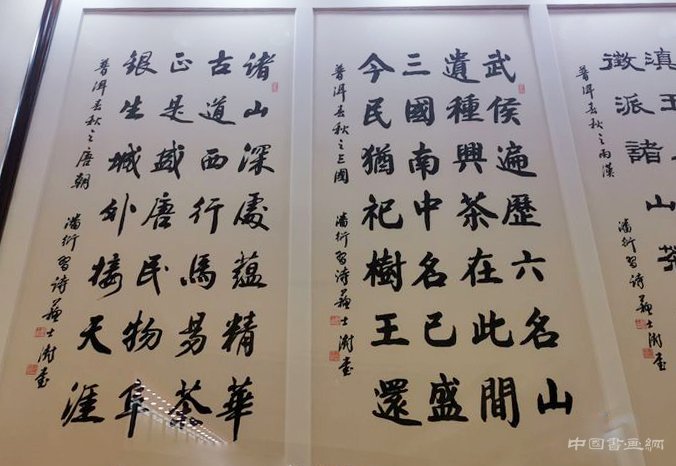 滇王
徵派諸山茶
普洱春秋之兩漢 潘衍習詩 蘇士澍書
武侯遍歷六名山
遺種興茶在此間
三國南中名已盛
今民猶祀樹王還
普洱春秋之三國 潘衍習詩 蘇士澍書
諸山深處蘊精華
古道西行馬易茶
正是盛唐民物阜
銀生城外接天涯
普洱春秋之唐朝 潘衍習詩 蘇士澍書
中國書畫網